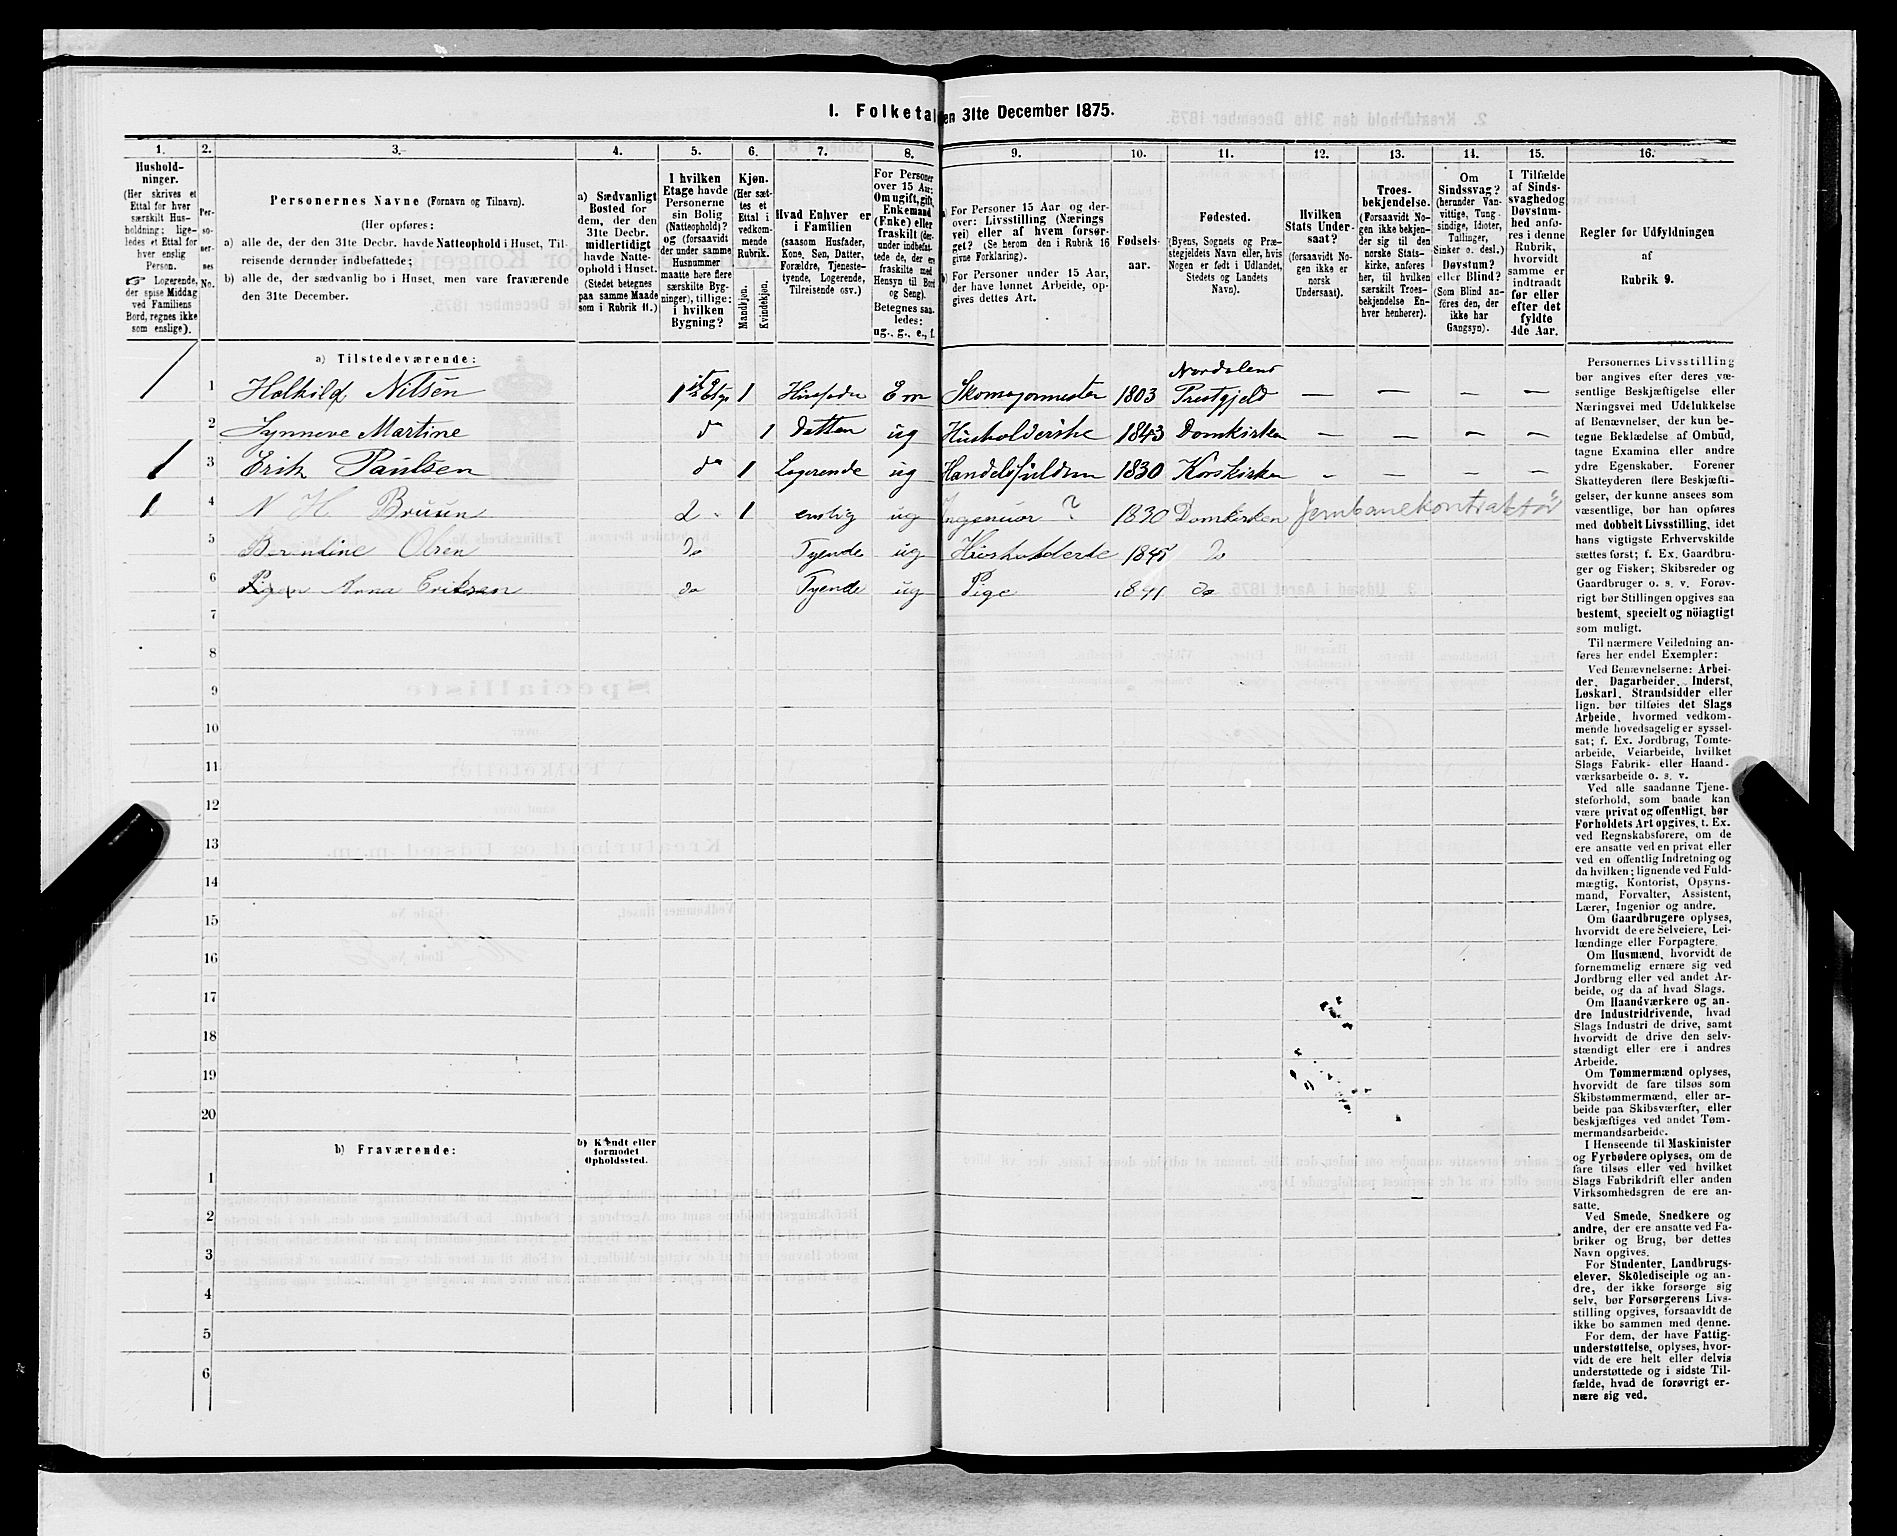 1. Folketal den 31te December 1875.
1.
Hushold-
ninger.
(Her skrives et
Ettal for hver
særskilt Hus-
holdning; lige-
ledes et Ettal for
hver enslig
Person.
Logerende,
der spise Middag
ved Familiens
Bord, regnes ikke
som enslige).
2.
Per-
so-
ner-
nes
No.
3.
Personernes Navne (Fornavn og Tilnavn).
(Her opføres:
a) alle de, der den 31te Decbr. havde Natteophold i Huset, Til-
reisende derunder indbefattede;
b) alle de, der sædvanlig bo i Huset, men vare fraværende
den 31te December.
4.
a) Sædvanligt
Bosted for
dem, der den
31te Decbr.
midlertidigt
havde Natte-
ophold i Huset.
(Stedet betegnes
paa samme Maade
som i Rubrik 11.)
5.
I hvilken
Etage havde
Personerne
sin Bolig
(Natteophold)?
og (forsaavidt
der under samme
Husnummer
maatte høre flere
særskilte Byg-
ninger), tillige:
i hvilken
Bygning?
6.
Kjøn.
(Her sæt-
tes et
Ettal i
vedkom-
mende
Rubrik.
Mandkjøn.
Kvindekjøn.
7.
Hvad Enhver er
i Familien
(saasom Husfader,
Kone, Søn, Datter,
Forældre, Tjeneste-
tyende, Logerende,
Tilreisende osv.)
8.
For Personer
over 15 Aar:
Om ugift, gift,
Enkemand
(Enke) eller
fraskilt (der-
under indbefat-
tede de, der ere
fraskilte med
Hensyn til Bord
og Seng).
Betegnes saa-
ledes:
ug., g., e., f.
9.
a) For Personer 15 Aar og der-
over: Livsstilling (Nærings
vei) eller af hvem forsør-
get? (Se herom den i Rubrik 16
givne Forklaring).
b) For Personer under 15 Aar,
der have lønnet Arbeide, op-
gives dettes Art.
10.
Fødsels-
aar.
11.
Fødested.
(Byens, Sognets og Præ-
stegjeldets Navn eller, hvis
Nogen er født i Udlandet,
Stedets og Landets
Navn).
12.
Hvilken
Stats Under-
saat?
(forsaavidt No-
gen ikke er
norsk
Undersaat).
13.
Troes-
bekjendelse.
(Forsaavidt No-
gen ikke bekjen-
der sig til den
norske Stats-
kirke, anføres
her, til hvilken
særskilt Troes-
bekjendelse En-
hver henhører).
14.
Om
Sindssvag?
(herunder Van-
vittige, Tung-
sindige, Idioter,
Tullinger,
Sinker o. desl.)
Døvstum?
eller Blind?
(Som Blind an-
føres den, der
ikke har
Gangsyn).
15.
I Tilfælde
af Sinds-
svaghed og
Døvstum-
hed anfø-
res i denne
Rubrik,
hvorvidt
samme er
indtraadt
før eller
efter det
fyldte
4de Aar.
16.
Regler for Udfyldningen
af
Rubrik 9.
a) Tilstedeværende:
1 1 Halkild Nilsen 1ste Etge 1 Husfader Em Skomagermester 1803 Nordalens Prestgjeld — — — —
2 Synneve Martine do 1 Datter ug Husholderske 1843 Domkirken — — — —
1 3 Erik Paulsen do 1 Logerende ug Handelsfuldm 1830 Korskirken — — — —
1 4 N H Bruun 2 " 1 enslig ug Ingeniør ? 1830 Domkirken Jernbanekontraktør
5 Berntine Olsen do Tyende ug Husholderske 1845 do
6 Pigen Anna Eriksen do Tyende ug Pige 1841 do
7
8
9
10
11
12
13
14
15
16
17
18
19
20
b) Fraværende:
b) Kjendt eller
formodet
Opholdssted.
1
2
3
4
5
6
Personernes Livsstilling
bør angives efter deres væ-
sentlige Beskjæftigelse eller
Næringsvei med Udelukkelse
af Benævnelser, der kun be-
tegne Beklædelse af Ombud,
tagne Examina eller andre
ydre Egenskaber. Forener
Skatteyderen flere Beskjæfti-
gelser, der kunne ansees som
væsentlige, bør han opføres
med dobbelt Livsstilling, idet
hans vigtigste Erhvervskilde
sættes først; f. Ex. Gaardbru-
ger og Fisker; Skibsreder og
Gaardbruger o. s. v. Forøv-
rigt bør Stillingen opgives saa
bestemt, specielt og nöiagtigt
som muligt.
Til nærmere Veiledning an-
føres her endel Exempler:
Ved Benævnelserne: Arbei-
der, Dagarbeider, Inderst,
Løskarl, Strandsidder eller
lign. bør tilføies det Slags
Arbeide, hvormed vedkom-
mende hovedsagelig er syssel-
sat; f. Ex. Jordbrug, Tomte-
arbeide, Veiarbeide, hvilket
Slags Fabrik- eller Haand-
værksarbeide o. s. v.
Ved alle saadanne Tjene-
steforhold, som baade kan
være privat og offentligt, bør
Forholdets Art opgives, t. Ex.
ved Regnskabsførere, om de
ere ansatte ved en privat eller
ved en offentlig Indretning og
da hvilken; lignende ved Fuld-
mægtig, Kontorist, Opsyns-
mand, Forvalter, Assistent,
Lærer, Ingeniør og andre.
Om Gaardbrugere oplyses,
hvorvidt de ere Selveiere, Lei-
lændinge eller Forpagtere.
Om Husmænd, hvorvidt de
fornemmelig ernære sig ved
Jordbrug eller ved andet Ar-
beide, og da af hvad Slags.
Om Haandværkere og an-
dre Industridrivende, hvad
Slags Industri de drive, samt
hvorvidt de drive den selv-
stændigt eller ere i andres
Arbeide.
Om Tømmermænd oplyses,
hvorvidt de fare tilsøs som
Skibstømmermænd, eller ar-
beide paa Skibsværfter, eller
beskjæftiges ved andet Tøm-
mermandsarbeide.
I Henseende til Maskinister
og Fyrbødere oplyses, om de
fare tilsøs eller ved hvilket
Slags Fabrikdrift eller anden
Virksomhedsgren de ere an-
satte.
Ved Smede, Snedkere og
andre, der ere ansatte ved Fa-
briker og Brug, bør dettes
Navn opgives.
For Studenter, Landbrugs-
elever, Skoledisciple og an-
dre, der ikke forsørge sig
selv, bør Forsørgerens Livs-
stilling opgives, forsaavidt de
ikke bo sammen med denne.
For dem, der have Fattig-
understøttelse, oplyses, hvor-
vidt de ere helt eller delvis
understøttede og i sidste Til-
fælde, hvad de forøvrigt er-
nære sig ved.